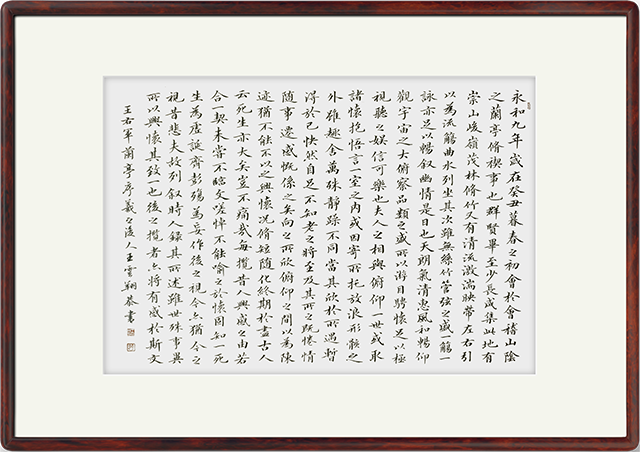 永和九年歲在癸丑暮春之初會於會稽山陰
之蘭亭脩稧事也群賢畢至少長咸集此地有
崇山峻嶺茂林脩竹又有清流激湍映帶左右引
以為流觴曲水列坐其次雖無絲竹管弦之盛一觴一
詠亦足以暢敘幽情是日也天朗氣清惠風和暢仰
觀宇宙之大俯察品類之盛所以游目騁懷足以極
視聽之娛信可樂也夫人之相與俯仰一世或取
諸懷抱悟言一室之內或因寄所托放浪形骸之
外雖趣舍萬殊靜躁不同當其欣於所遇暫
得於己快然自足不知老之將至及其所之既惓情
隨事遷感慨係之矣向之所欣俯仰之間以為陳
迹猶不能不以之興懷況脩短隨化終期於盡古人
云死生亦大矣豈不痛哉每攬昔人興感之由若
合一契未嘗不臨文嗟悼不能喻之於懷固知一死
生為虛誕齊彭殤為妄作後之視今亦猶今之
視昔悲夫故列敘時人錄其所述雖世殊事異
所以興懷其致一也後之攬者亦將有感於斯文
王右軍蘭亭序羲之後人王雲翔恭書